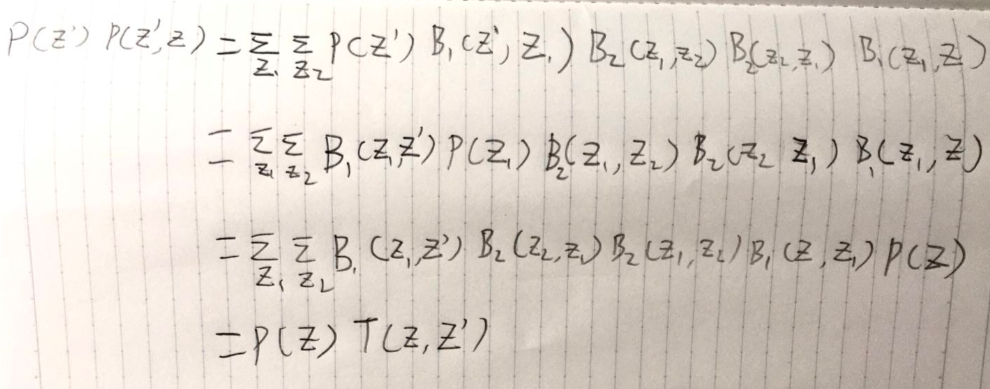 P(z') P(z',z) = Σ_{z_1} Σ_{z_2} P(z') B_1(z', z_1) B_2(z_1,z_2) B_2(z_2,z_1) B_1(z_1,z)
= Σ_{z_1} Σ_{z_2} B_1(z_1,z') P(z_1) B_2(z_1,z_2) B_2(z_2 z_1) B_1(z_1,z)
= Σ_{z_1} Σ_{z_2} B_1(z_1,z') B_2(z_2,z_1) B_2(z_1,z_2) B_1(z,z_1) P(z)
= P(z) T(z,z')